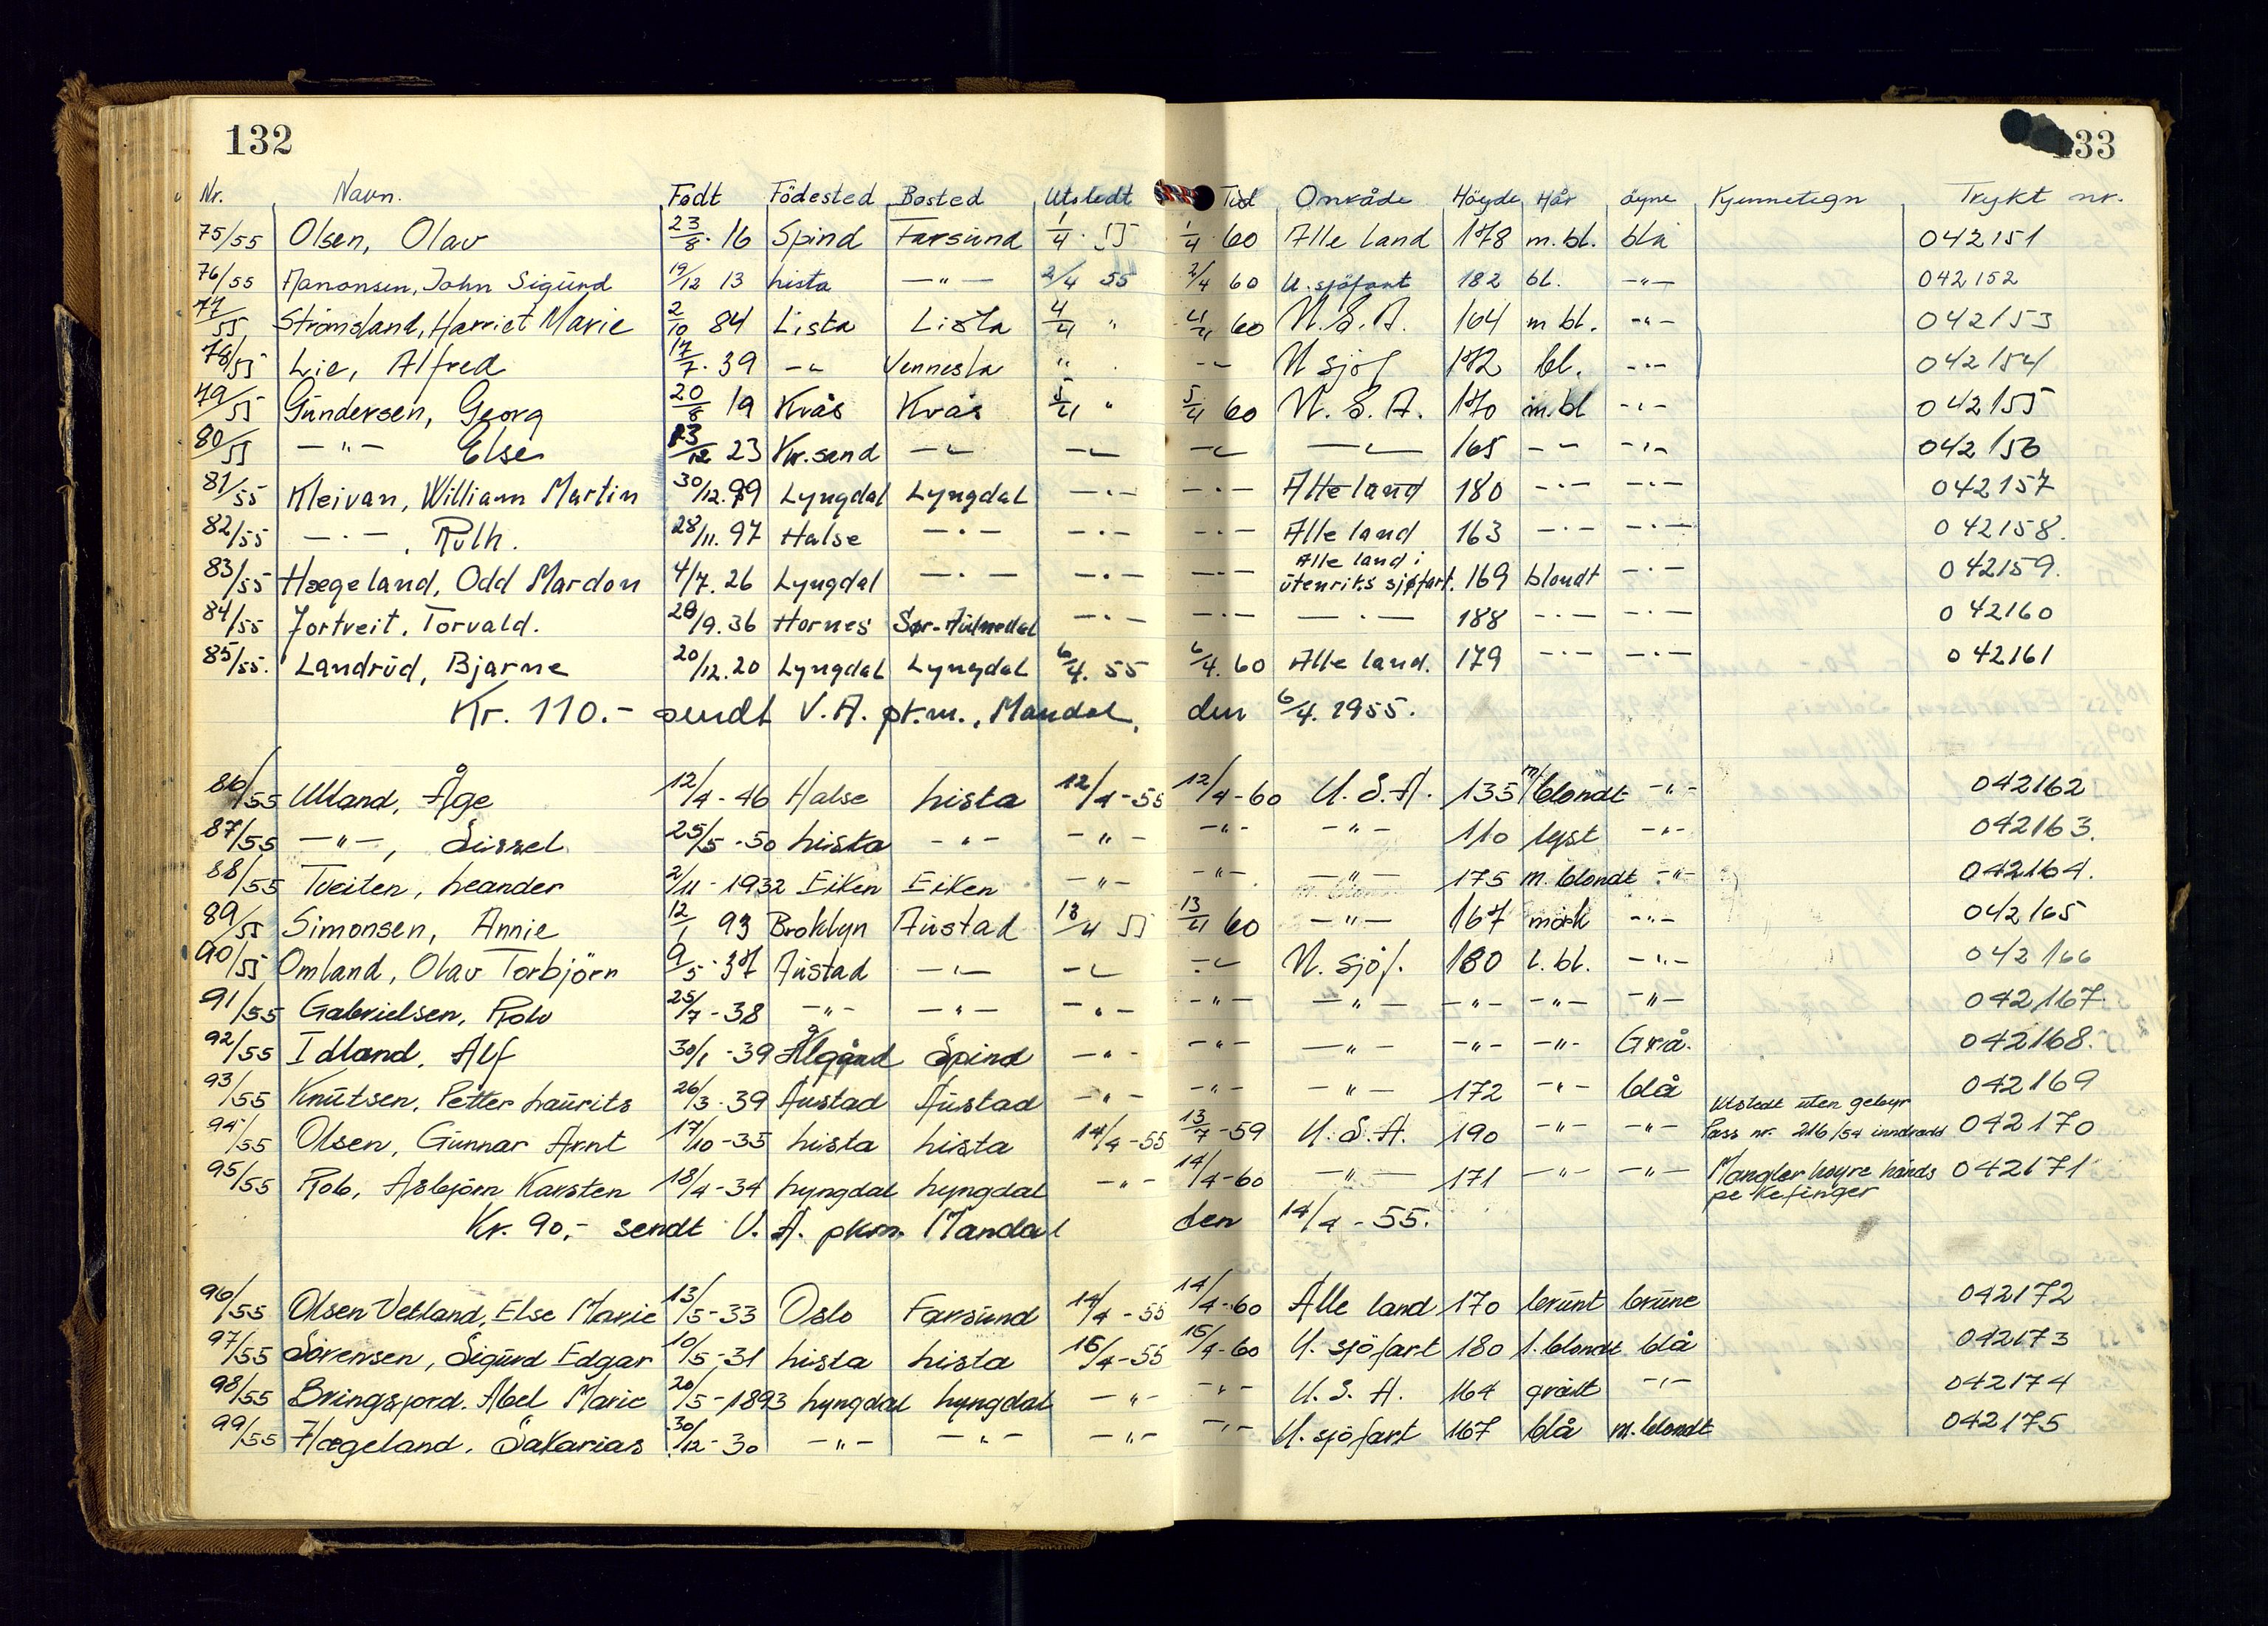 132
133
Nr. Navn. Født Födested Bosted Utstedt Tid Område Höyde Hår öyne Kjennetegn Trykt nr.
75/55 Olsen, Olav 23/8. 16 Spind Farsund 1/4. 55 1/4 60 Alle land 178 m.bl. blå 042151
76/55 Aanonsen, John Sigurd 19/12 13 Lista —"— 2/4 55 2/4 60 U. sjöfart 182 bl. —"— 042152
77/55 Strömsland, Harriet Marie 2/10 84 Lista Lista 4/4 " 4/4 60 U.S.A. 164 m bl. -"- 042153
78/55 Lie, Alfred 17/7. 39 -"- Vennesla " -"- U sjöf 172 bl. -"- 042154
79/55 Gundersen, Georg 20/8 19 Kvås Kvås 5/4 " 5/4 60 U.S.A. 170 m.bl -"- 042155
80/55 —"— Else 13/12 23 Kr.sand -"- -"- -"- —"— 165 -"- -"- 042156
81/55 Kleivan, William Martin 30/12.99 Lyngdal Lyngdal —"— —"— Alle land 180 —"— —"— 042157
82/55 —"—, Ruth. 28/11. 97 Halse —"— —"— —"— Alle land 163 —"— —"— 042158.
83/55 Hægeland, Odd Mardon 4/7. 26 Lyngdal —"— —"— —"— Alle land i utenriks sjøfart. 169 blondt —"— 042159.
84/55 Fortveit, Torvald. 28/9. 36 Hornes Sør-Audnedal —"— —"— —"— 188 —"— —"— 042160
85/55. Landrud, Bjarne 20/12.20 Lyngdal Lyngdal 6/4. 55 6/4. 60 Alle land. 179 —"— —"— 042161
Kr. 110.- sendt V.A. pk.m., Mandal, den 6/4. 1955.
86/55 Ulland, Åge 12/4-46 Halse Lista 12/4-55 12/4-60 U.S.A. 135 m/blondt -"- 042162
87/55 —"—, Sissel 25/5-50 Lista -"- -"- -"- -"- 110 lyst -"- 042163.
88/55 Tveiten, Leander 2/11-1932 Eiken Eiken -"- -"- —"— 175 m. blondt -"- 042164.
89/55 Simonsen, Annie 12/1 93 Broklyn Austad 13/4 55 13/4 60 —"— 167 mörk -"- 042165
90/55 Omland, Olav Torbjörn 9/5.37 Austad -"- -"- -"- U. sjöf. 180 l. bl. -"- 042166
91/55 Gabrielsen, Rolv 25/7-38 -"- -"- -"- -"- —"— -"- -"- -"- 042167.
92/55 Idland, Alf 30/1-39 Ålgård Spind -"- -"- —"— -"- -"- Grå. 042168.
93/55 Knutsen, Petter Laurits 26/3-39 Austad Austad -"- -"- -"- 172 -"- blå 042169
94/55 Olsen, Gunnar Arnt 17/10-35 Lista Lista 14/4-55 13/7-59 U.S.A. 190 -"- -"- Utstedt uten gebyr Pass nr. 216/54 inndradd 042170
95/55 Rob, Asbjörn Karsten 18/4-34 Lyngdal Lyngdal -"- 14/4-60 —"— 171 -"- -"- Mangler høyre hånds pekefinger 042171
Kr. 90,- sendt V. A. pkm. Mandal den 14/4-55.
96/55 Olsen Vetland, Else Marie 13/5-33 Oslo Farsund 14/4-55 14/4-60 Alle land 170 brunt brune 042172
97/55 Sörensen, Sigurd Edgar 10/5-31 Lista Lista 15/4-55 15/4-60 U. sjöfart 180 l. blondt blå 042173
98/55 Bringsjord. Abel Marie 20/5-1893 Lyngdal Lyngdal -"- -"- U.S.A. 164 grått -"- 042174
99/55 Hægeland. Sakarias 30/12-30 -"- -"- -"- -"- U. sjöfart 167 blå m. blondt 042175